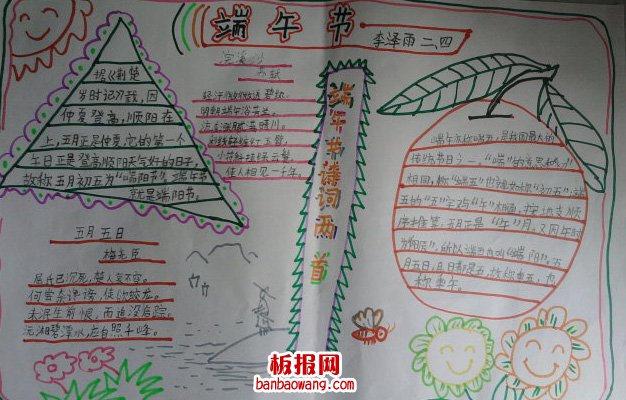 端午节
李泽雨 二、四
据《荆楚
岁时记》载,因
仲夏登高,顺阳在
上,五月正是仲夏,它的第一个
午日正是登高顺阳天气好的日子,
故称五月初五为“端阳节”。端午节
就是端阳节。
浣溪沙
苏轼
轻汗微微透碧纨,
明朝端午浴芳兰。
流香涨腻满晴川。
彩线轻缠红玉臂,
小符斜挂绿云鬟。
佳人相见一千年。
端午节诗词两首
端午亦称端五,是我国最大的
传统节日之一,“端”的意思和初
相同,称“端五”也就如称“初五”;端
五的“五”字与“午”相通,按地支顺
序推算,五月正是“午”月。又因午时
为“阳辰”,所以端五也叫“端阳”。五
月五日,月日都是五,故称重五,也
称重午。
五月五日
梅尧臣
屈氏已沉死,楚人哀不容。
何尝奈谗谤,徒欲却蛟龙。
未泯生前恨,而追没后踪。
沅湘碧潭水,应自照千峰。
板报网
banbaowang.com